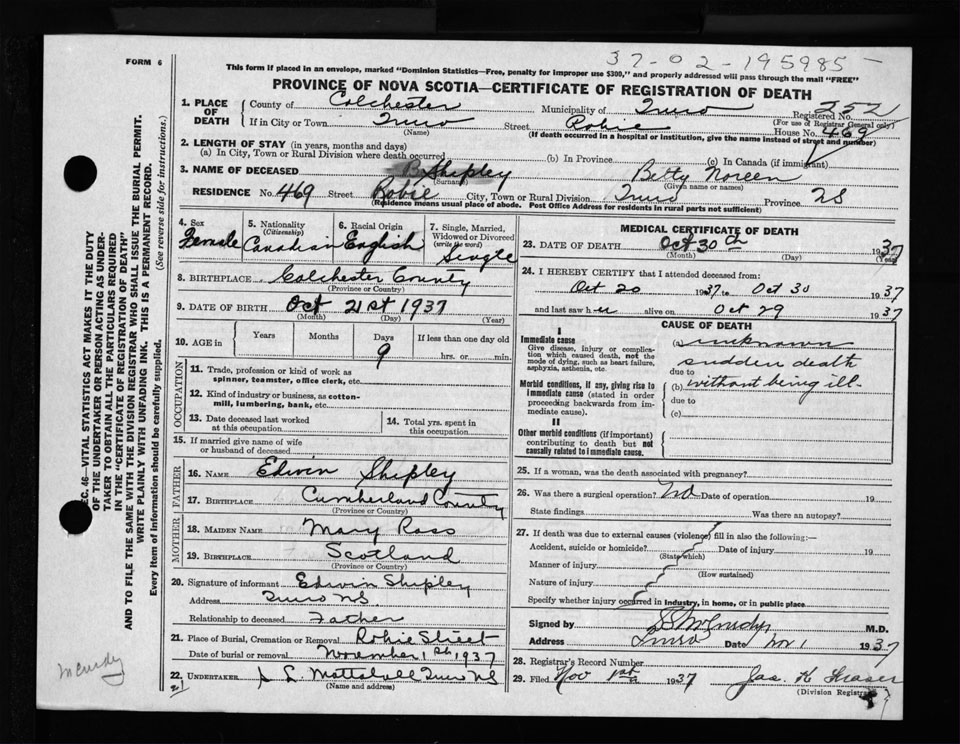 37-02-195985
FORM 6
This form if placed in an envelope, marked "Dominion Statistics—Free, penalty for improper use $300," and properly addressed will pass through the mail "FREE"
PROVINCE OF NOVA SCOTIA—CERTIFICATE OF REGISTRATION OF DEATH
1. PLACE OF DEATH
County of Colchester Municipality of Truro Registered No. 252
(For use of Registrar General only)
If in City or Town Truro Street Robie House No. 469
(Name) (If death occurred in a hospital or institution, give the name instead of street and number)
2. LENGTH OF STAY (in years, months and days)
(a) In City, Town or Rural Division where death occurred (b) In Province (c) In Canada (if immigrant)
3. NAME OF DECEASED Shipley Betty Noreen
(Surname) (Given name or names)
RESIDENCE No. 469 Street Robie City, Town or Rural Division Truro Province NS
(Residence means usual place of abode. Post Office Address for residents in rural parts not sufficient)
4. Sex Female
5. Nationality (Citizenship) Canadian
6. Racial Origin English
7. Single, Married, Widowed or Divorced (write the word) Single
8. BIRTHPLACE Colchester County
(Province or Country)
9. DATE OF BIRTH Oct 21st 1937
(Month) (Day) (Year)
10. AGE in Years Months Days 9 If less than one day old hrs. or min.
OCCUPATION
11. Trade, profession or kind of work as spinner, teamster, office clerk, etc.
12. Kind of industry or business, as cotton-mill, lumbering, bank, etc.
13. Date deceased last worked at this occupation
14. Total yrs. spent in this occupation
15. If married give name of wife or husband of deceased
FATHER
16. NAME Edwin Shipley
17. BIRTHPLACE Cumberland County
(Province or Country)
MOTHER
18. MAIDEN NAME Mary Ross
19. BIRTHPLACE Scotland
(Province or Country)
20. Signature of informant Edwin Shipley
Address Truro NS.
Relationship to deceased Father
21. Place of Burial, Cremation or Removal Robie Street
Date of burial or removal November 1st, 1937
22. UNDERTAKER L. Mattatall Truro NS
(Name and address)
MEDICAL CERTIFICATE OF DEATH
23. DATE OF DEATH Oct 30th 1937
(Month) (Day) (Year)
24. I HEREBY CERTIFY that I attended deceased from:
Oct 20 1937 to Oct 30 1937
and last saw her alive on Oct 29 1937
CAUSE OF DEATH
I
Immediate cause
Give disease, injury or complication which caused death, not the mode of dying, such as heart failure, asphyxia, asthenia, etc.
(a) unknown
sudden death
due to
Morbid conditions, if any, giving rise to immediate cause (stated in order proceeding backwards from immediate cause).
(b) without being ill-
due to
(c)
II
Other morbid conditions (if important) contributing to death but not causally related to immediate cause.
25. If a woman, was the death associated with pregnancy?
26. Was there a surgical operation? No Date of operation 19
State findings Was there an autopsy?
27. If death was due to external causes (violence) fill in also the following:—
Accident, suicide or homicide? Date of injury 19
(State which)
Manner of injury
(How sustained)
Nature of injury
Specify whether injury occurred in industry, in home, or in public place
Signed by McCurdy M.D.
Address Truro Date Nov 1 1937
28. Registrar's Record Number
29. Filed Nov 1st 1937 Jas. K Fraser
(Division Registrar)
SEC. 46—VITAL STATISTICS ACT MAKES IT THE DUTY
OF THE UNDERTAKER OR PERSON ACTING AS UNDER-
TAKER TO OBTAIN ALL THE PARTICULARS REQUIRED
IN THE "CERTIFICATE OF REGISTRATION OF DEATH"
AND TO FILE THE SAME WITH THE DIVISION REGISTRAR WHO SHALL ISSUE THE BURIAL PERMIT.
WRITE PLAINLY WITH UNFADING INK. THIS IS A PERMANENT RECORD.
Every item of Information should be carefully supplied. (See reverse side for instructions.)
McCurdy
21